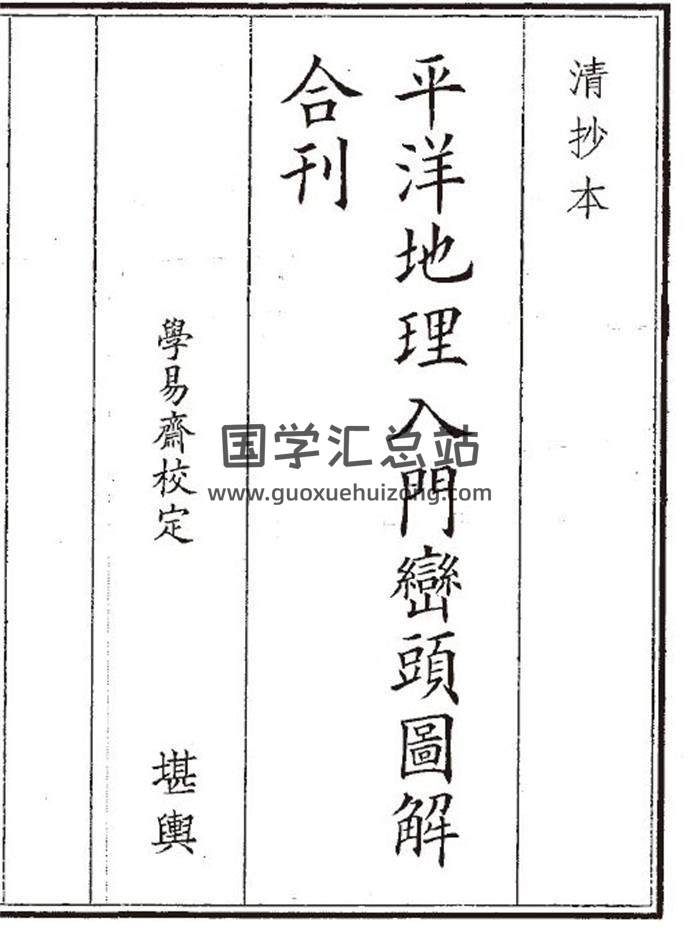 清抄本
平洋地理入門巒頭圖解
合刊
學易齋校定
堪輿
国学汇总站
www.guoxuehuizong.com